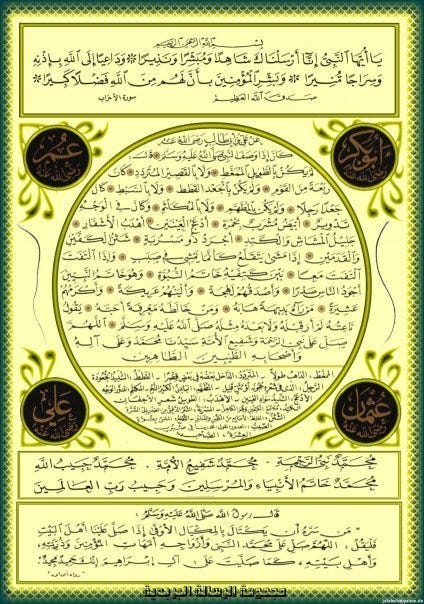 بسم الله الرحمن الرحيم
يا أيها النبي إنا أرسلناك شاهدا ومبشرا ونذيرا وداعيا إلى الله بإذنه
وسراجا منيرا وبشر المؤمنين بأن لهم من الله فضلا كبيرا
صدق الله العظيم سورة الأحزاب
أبو بكر رضي الله عنه
عمر رضي الله عنه
عن علي بن أبي طالب رضي الله عنه
كان إذا وصف النبي صلى الله عليه وسلم قال:
لم يكن بالطويل الممغط ولا بالقصير المتردد كان
ربعة من القوم ولم يكن بالجعد القطط ولا بالسبط كان
جعدا رجلا ولم يكن بالمطهم ولا بالمكلثم وكان في الوجه
تدوير أبيض مشرب بحمرة أدعج العينين أهدب الأشفار
جليل المشاش والكتد أجرد ذو مسربة شثن الكفين
والقدمين إذا مشى تقلع كأنما يمشي في صبب وإذا التفت
التفت معا بين كتفيه خاتم النبوة وهو خاتم النبيين
أجود الناس صدرا وأصدقهم لهجة وألينهم عريكة وأكرمهم
عشرة من رآه بديهة هابه ومن خالطه معرفة أحبه يقول
ناعته لم أر قبله ولا بعده مثله صلى الله عليه وسلم اللهم
صل على نبي الرحمة وشفيع الأمة سيدنا محمد وعلى آله
وأصحابه الطيبين الطاهرين
عثمان رضي الله عنه
علي رضي الله عنه
الممغط: الذاهب طولا المتردد: الداخل بعضه في بعض قصرا القطط: الشديد الجعودة
محمد نبي الرحمة. محمد شفيع الأمة. محمد حبيب الله
محمد خاتم الأنبياء والمرسلين وحبيب رب العالمين
قال رسول الله صلى الله عليه وسلم:
من سره أن يكتال بالمكيال الأوفى إذا صلى علينا أهل البيت
فليقل: اللهم صل على محمد النبي وأزواجه أمهات المؤمنين وذريته،
وأهل بيته، كما صليت على آل إبراهيم إنك حميد مجيد
رواه أبو داود
مجموعة الرسالة البريدية